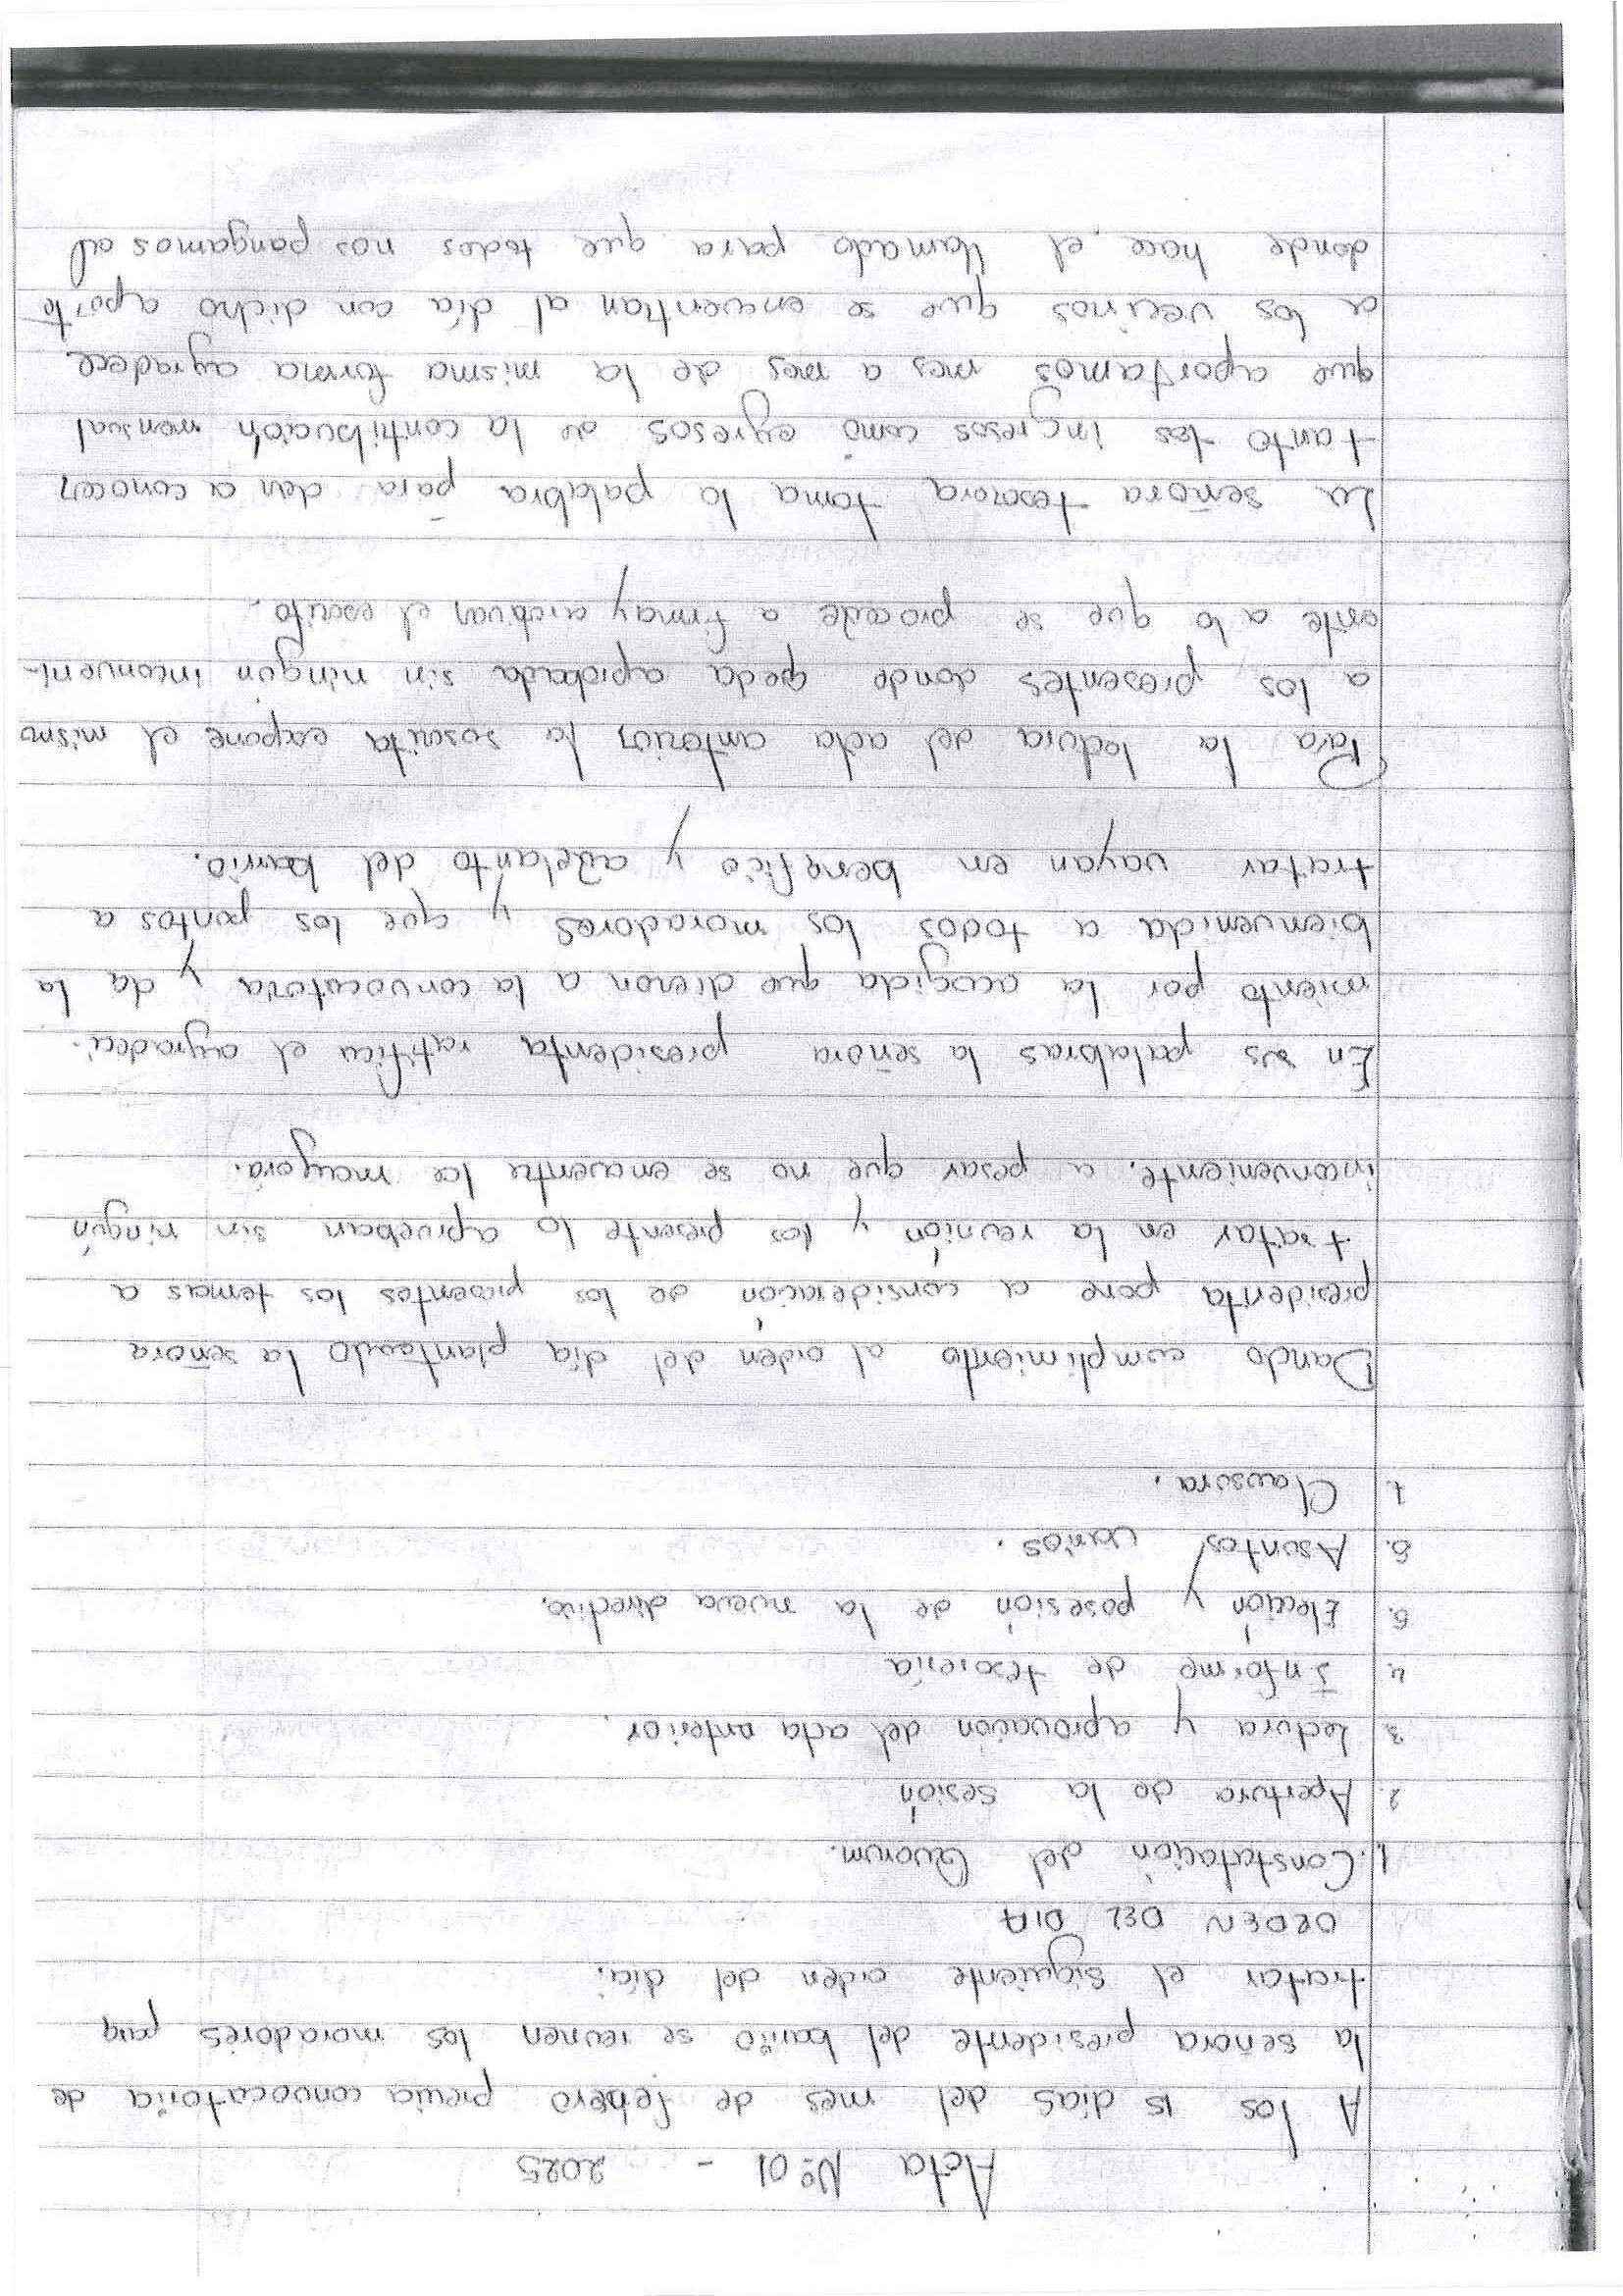 Acta Nº 01 - 2025
A los 15 días del mes de febrero previa convocatoria de
la señora presidente del barrio se reunen los moradores para
tratar el siguiente orden del día:
ORDEN DEL DIA
1. Constatación del Quorum.
2. Apertura de la sesión
3. Lectura y aprovación del acta anterior.
4. Informe de tesorería
5. Elección y posesión de la nueva directiva.
6. Asuntos varios.
7. Clausura.
Dando complimiento al orden del día planteado la señora
presidenta pone a consideración de los presentes los temas a
tratar en la reunión y los presente lo aprueban sin ningún
inconveniente, a pesar que no se encuentra la mayoría.
En sus palabras la señora presidenta ratifica el agradeci-
miento por la acogida que dieron a la convocatoria y da la
bienvenida a todos los moradores y que los puntos a
tratar vayan en beneficio y adelanto del barrio.
Para la lectura del acta anterior la suscrita expone el mismo
a los presentes donde qeda aprobada sin ningún inconveni-
ente a lo que se procede a firmar y archivar el escrito.
La señora tesorera toma la palabra para den a conocer
tanto los ingresos como egresos de la contribución mensual
que aportamos mes a mes de la misma forma agradece
a los vecinos que se encuentran al día con dicho aporte
donde hace el llamado para que todos nos pongamos al